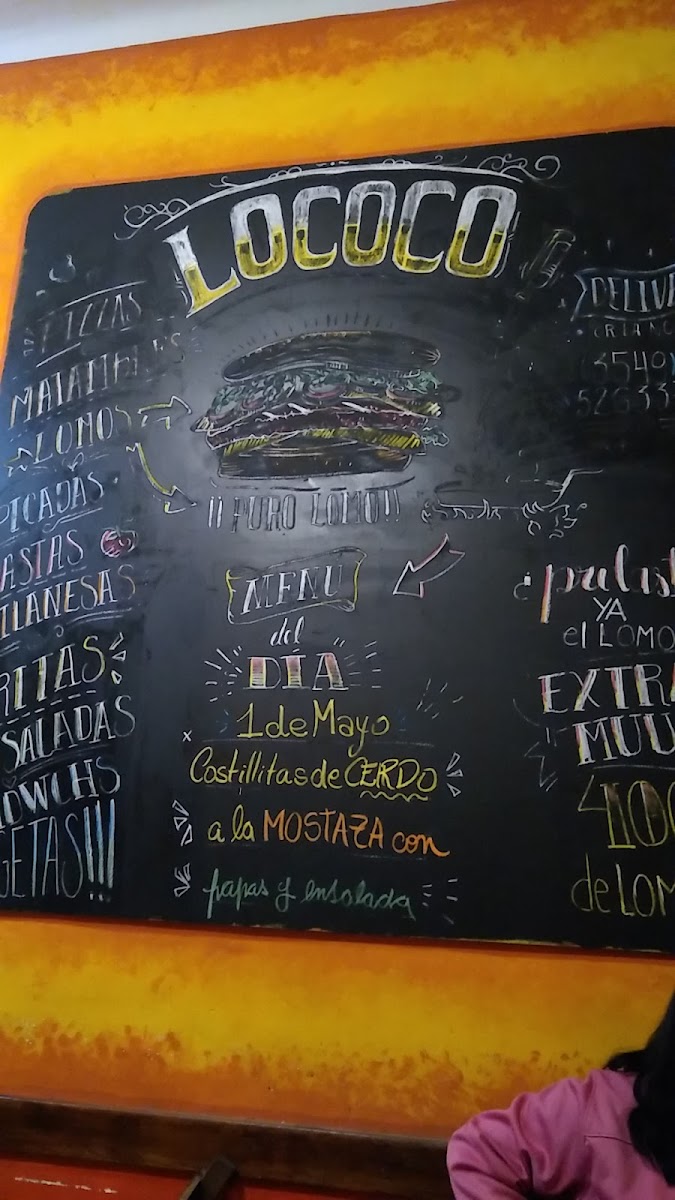 LOCOCO
PIZZAS
MATAMBRES
LOMOS
PICADAS
ASTAS
ILANESAS
RITAS
SALADAS
DWCHS
GETAS!!!
¡¡PURO LOMO!!
MENU
del
DÍA
1 de Mayo
Costillitas de CERDO
a la MOSTAZA con
papas y ensalada
DELIVE
3549
52633
¿probast
YA
el LOMO
EXTRA
MUU
400
de LOM